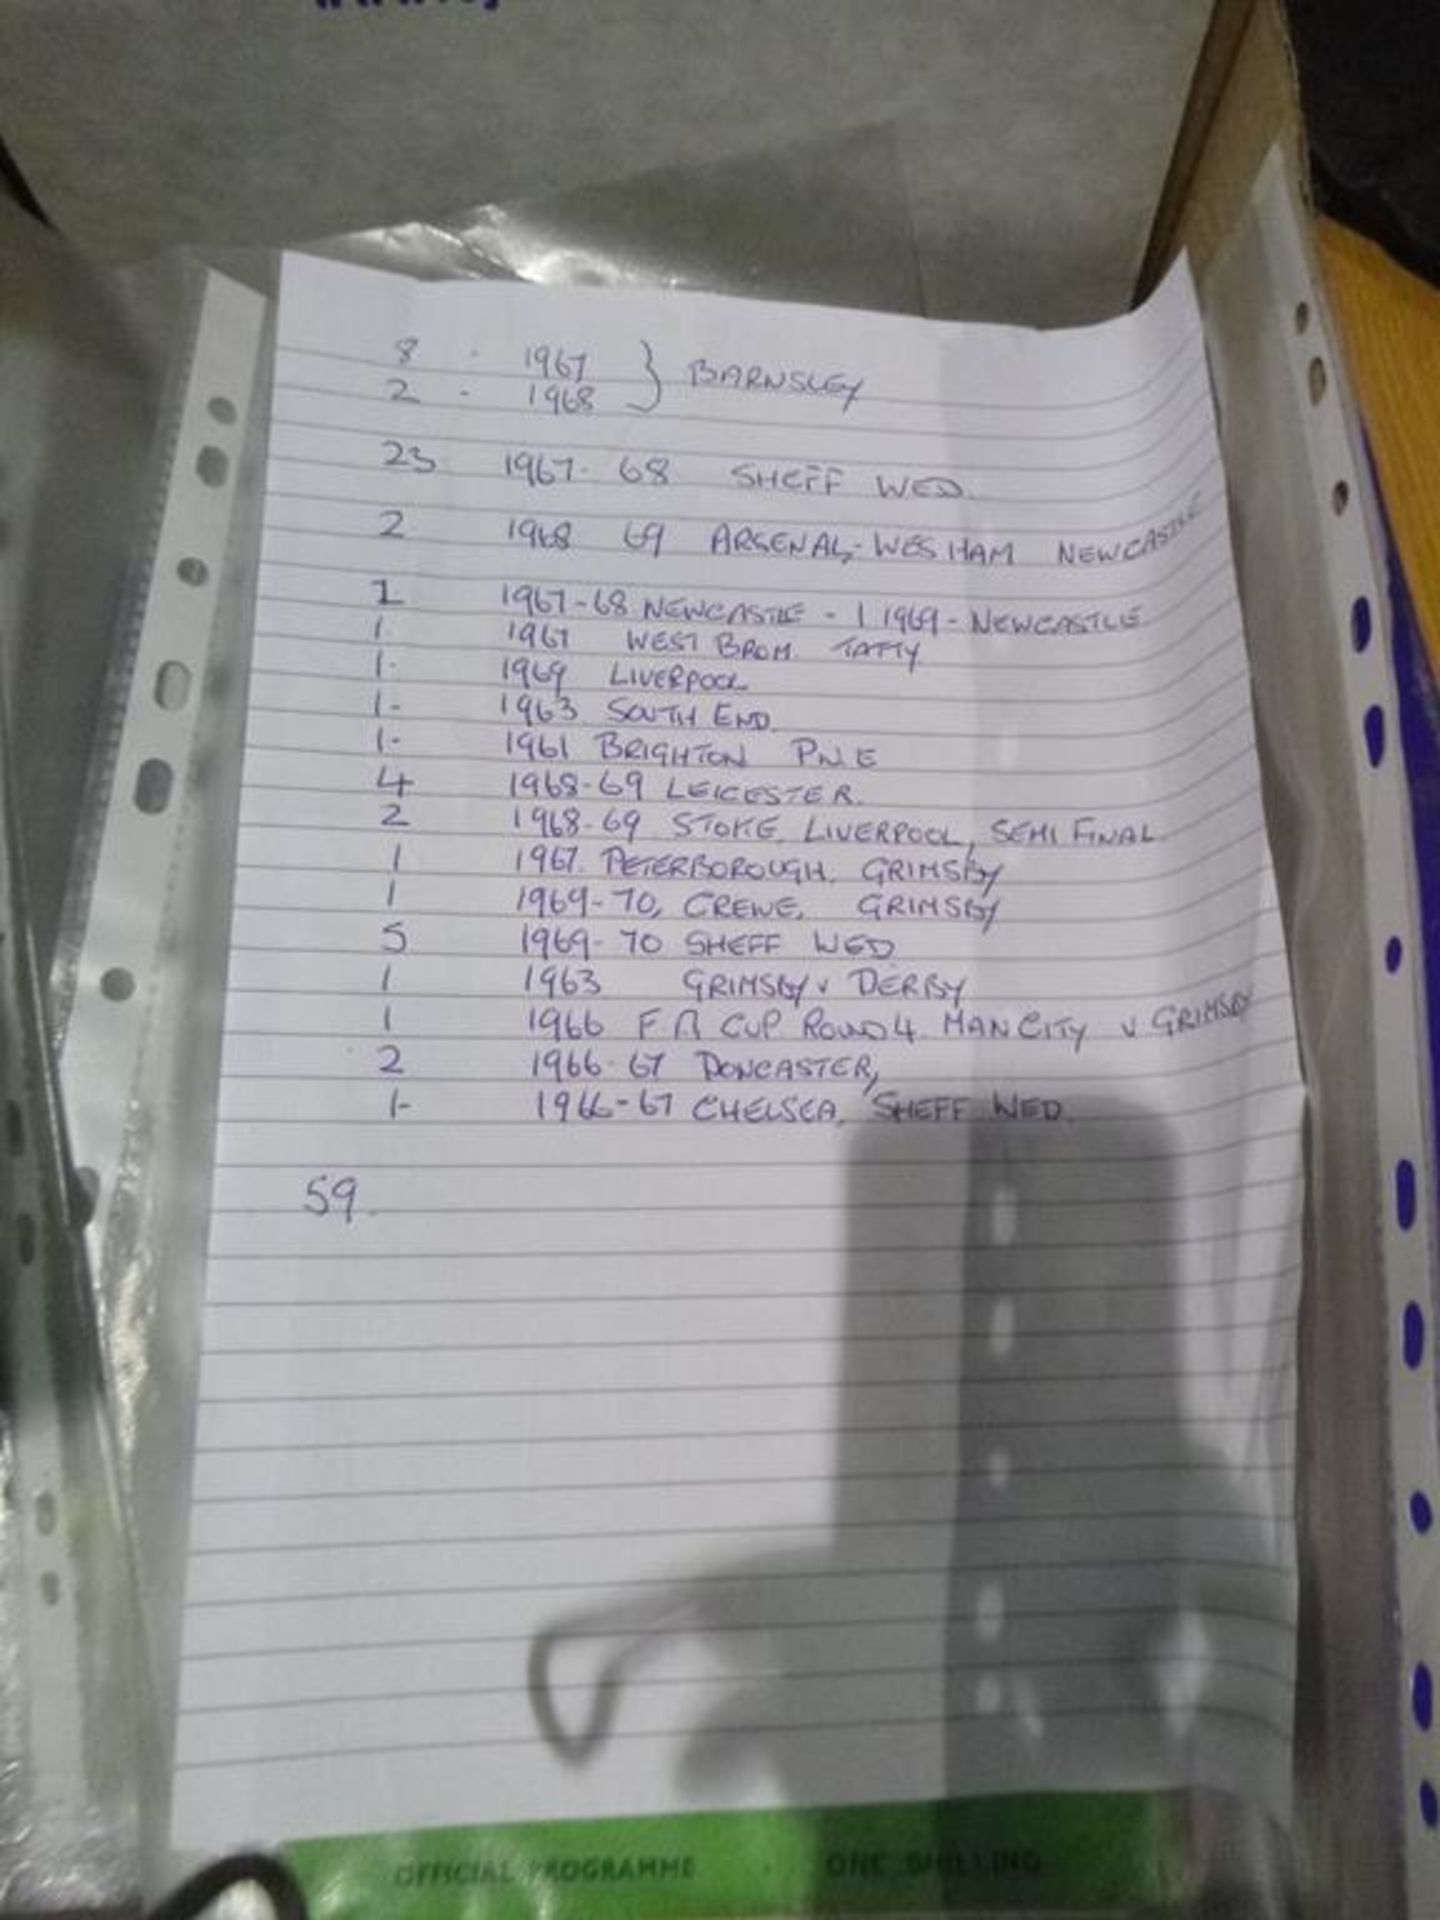 8 - 1967 } BARNSLEY
2 - 1968
23 1967-68 SHEFF WED.
2 1968 69 ARSENAL,-WES HAM NEWCASTLE
1 1967-68 NEWCASTLE - 1 1969 - NEWCASTLE
1 1967 WEST BROM. TATTY
1- 1969 LIVERPOOL
1- 1963 SOUTH END.
1- 1961 BRIGHTON P.N.E
4 1968-69 LEICESTER.
2 1968-69 STOKE, LIVERPOOL, SEMI FINAL
1 1967. PETERBOROUGH, GRIMSBY
1 1969-70, CREWE, GRIMSBY
5 1969-70 SHEFF WED
1 1963 GRIMSBY v DERBY
1 1966 F A CUP ROUND 4 MAN CITY v GRIMSBY
2 1966-67 DONCASTER,
1- 1966-67 CHELSEA, SHEFF WED.
59.
OFFICIAL PROGRAMME · ONE SHILLING